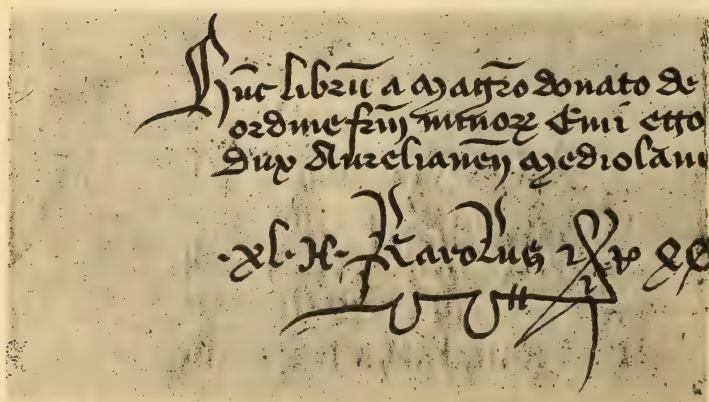 Hūc librū a Magr̄o donato de
ordine fr̄m minoꝝ Emi ego
dux Aurelianen̄ Mediolani
·xl·
Karolus